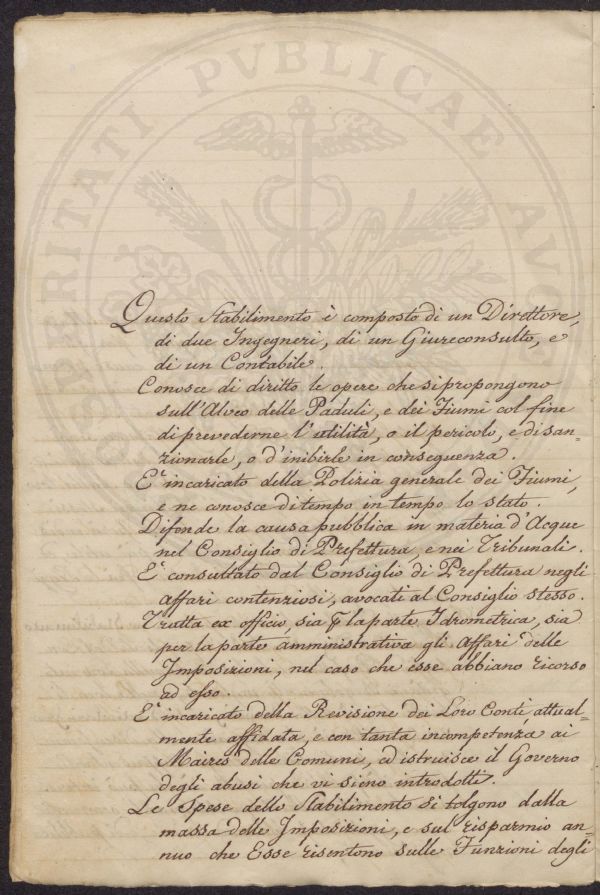 PROSPERITATI PVBLICAE AVGENDAE
Questo Stabilimento è composto di un Direttore,
di due Ingegneri, di un Giureconsulto, e
di un Contabile.
Conosce di diritto le opere che si propongono
sull'Alveo delle Paduli, e dei Fiumi col fine
di prevederne l'utilità, o il pericolo, e di san-
zionarle, o d'inibirle in conseguenza.
E' incaricato della Polizia generale dei Fiumi,
e ne conosce di tempo in tempo lo stato.
Difende la causa pubblica in materia d'Acque
nel Consiglio di Prefettura, e nei Tribunali.
E' consultato dal Consiglio di Prefettura negli
affari contenziosi, avocati al Consiglio stesso.
Tratta ex officio, sia ꝑ la parte Idrometrica, sia
per la parte amministrativa gli Affari delle
Imposizioni, nel caso che esse abbiano ricorso
ad esso.
E' incaricato della Revisione dei Loro Conti, attual-
mente affidata, e con tanta incompetenza ai
Maires delle Comuni, ed istruisce il Governo
degli abusi che vi sieno introdotti.
Le Spese dello Stabilimento si tolgono dalla
massa delle Imposizioni, e sul risparmio an-
nuo che Esse risentono sulle Funzioni degli